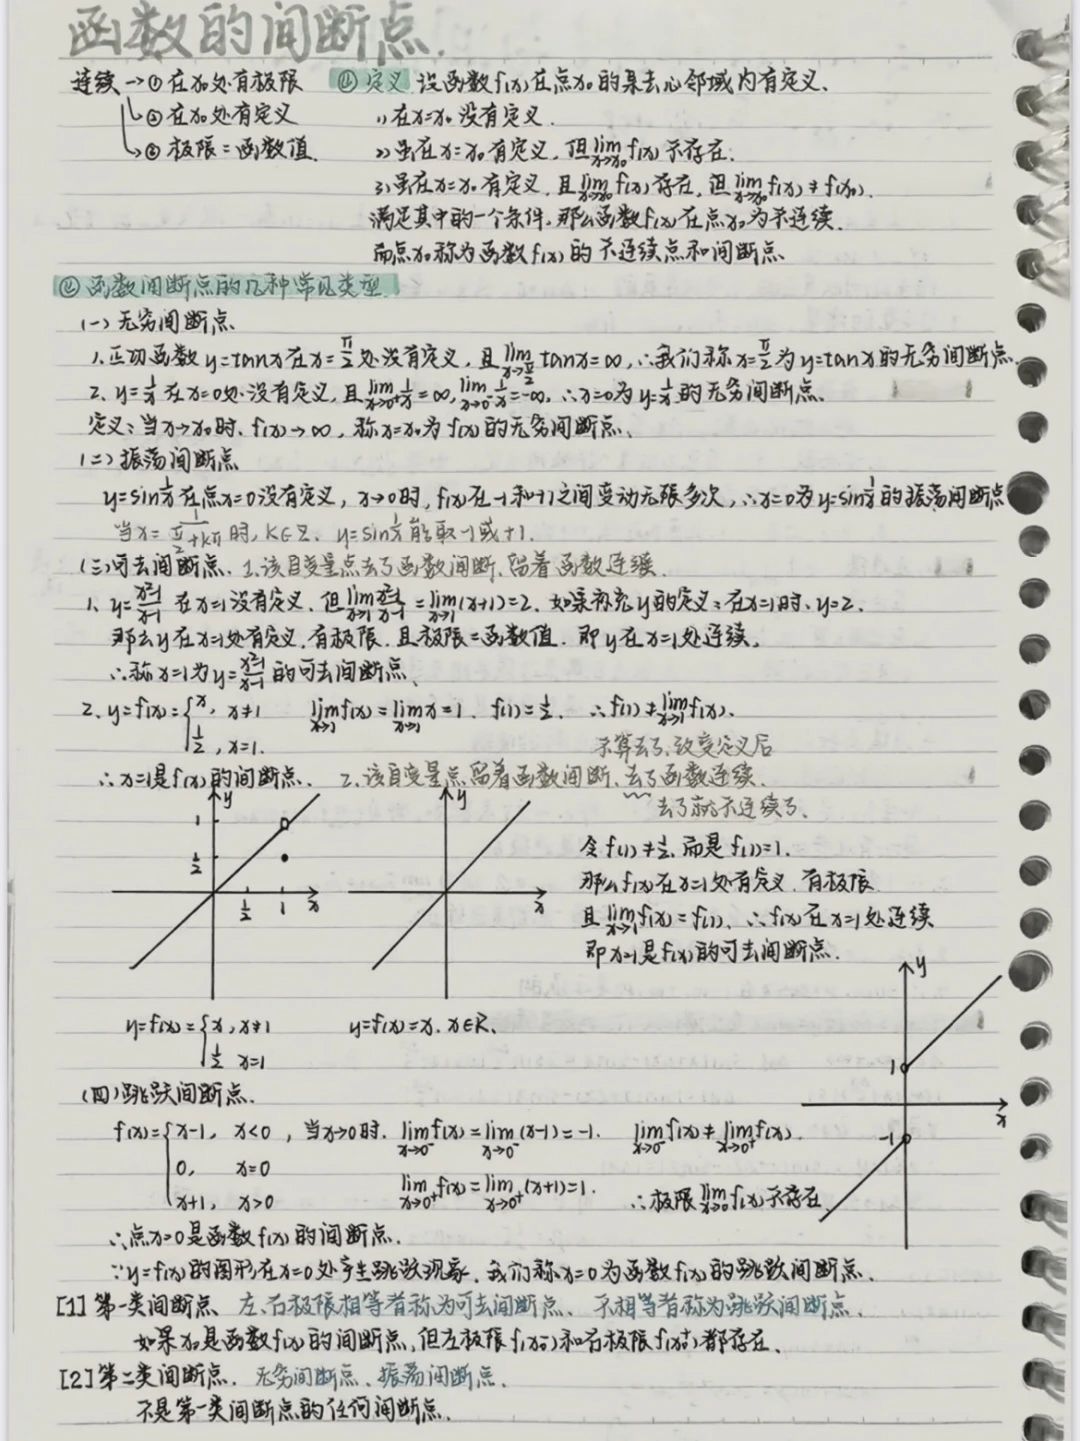 函数的间断点.
连续→①在x₀处有极限
↳②在x₀处有定义
↳③极限=函数值.
(1) 定义 设函数f(x)在点x₀的某去心邻域内有定义.
1)在x=x₀没有定义.
2)虽在x=x₀有定义,但lim(x→x₀)f(x)不存在.
3)虽在x=x₀有定义,且lim(x→x₀)f(x)存在,但lim(x→x₀)f(x)≠f(x₀).
满足其中的一个条件,那么函数f(x)在点x₀为不连续.
而点x₀称为函数f(x)的不连续点和间断点
(2) 函数间断点的几种常见类型
(一)无穷间断点.
1.正切函数y=tanx在x=π/2处没有定义,且lim(x→π/2)tanx=∞,∴我们称x=π/2为y=tanx的无穷间断点.
2. y=1/x在x=0处没有定义,且lim(x→0⁺)1/x=∞,lim(x→0⁻)1/x=-∞,∴x=0为y=1/x的无穷间断点.
定义:当x→x₀时,f(x)→∞,称x=x₀为f(x)的无穷间断点.
(二)振荡间断点
y=sin1/x在点x=0没有定义,x→0时,f(x)在-1和+1之间变动无限多次,∴x=0为y=sin1/x的振荡间断点
当x=1/(π/2+kπ)时,k∈Z. y=sin1/x能取-1或+1.
(三)可去间断点. 1.该自变量点去了函数间断,留着函数连续.
1. y=(x²-1)/(x-1)在x=1没有定义.但lim(x→1)(x²-1)/(x-1)=lim(x→1)(x+1)=2.如果补充y的定义:在x=1时,y=2.
那么y在x=1处有定义,有极限,且极限=函数值.即y在x=1处连续.
∴称x=1为y=(x²-1)/(x-1)的可去间断点.
2. y=f(x)={x, x≠1 lim(x→1)f(x)=lim(x→1)x=1. f(1)=1/2. ∴f(1)≠lim(x→1)f(x).
1/2, x=1.
不算去了,改变定义后
∴x=1是f(x)的间断点. 2.该自变量点留着函数间断,去了函数连续.
去了就不连续了.
y
1
1/2
1/2 1 x
y
x
令f(1)≠1/2.而是f(1)=1.
那么f(x)在x=1处有定义.有极限
且lim(x→1)f(x)=f(1). ∴f(x)在x=1处连续
即x=1是f(x)的可去间断点.
y=f(x)={x, x≠1
1/2 x=1
y=f(x)=x. x∈R.
y
1
x
-1
(四)跳跃间断点.
f(x)={x-1, x<0, 当x→0时. lim(x→0⁻)f(x)=lim(x→0⁻)(x-1)=-1. lim(x→0⁻)f(x)≠lim(x→0⁺)f(x).
0, x=0
x+1, x>0
lim(x→0⁺)f(x)=lim(x→0⁺)(x+1)=1. ∴极限lim(x→0)f(x)不存在
∴点x=0是函数f(x)的间断点.
∵y=f(x)的图形在x=0处产生跳跃现象,我们称x=0为函数f(x)的跳跃间断点.
[1] 第一类间断点 左、右极限相等者称为可去间断点、不相等者称为跳跃间断点.
如果x₀是函数f(x)的间断点,但左极限f(x₀⁻)和右极限f(x₀⁺)都存在.
[2]第二类间断点. 无穷间断点、振荡间断点.
不是第一类间断点的任何间断点.